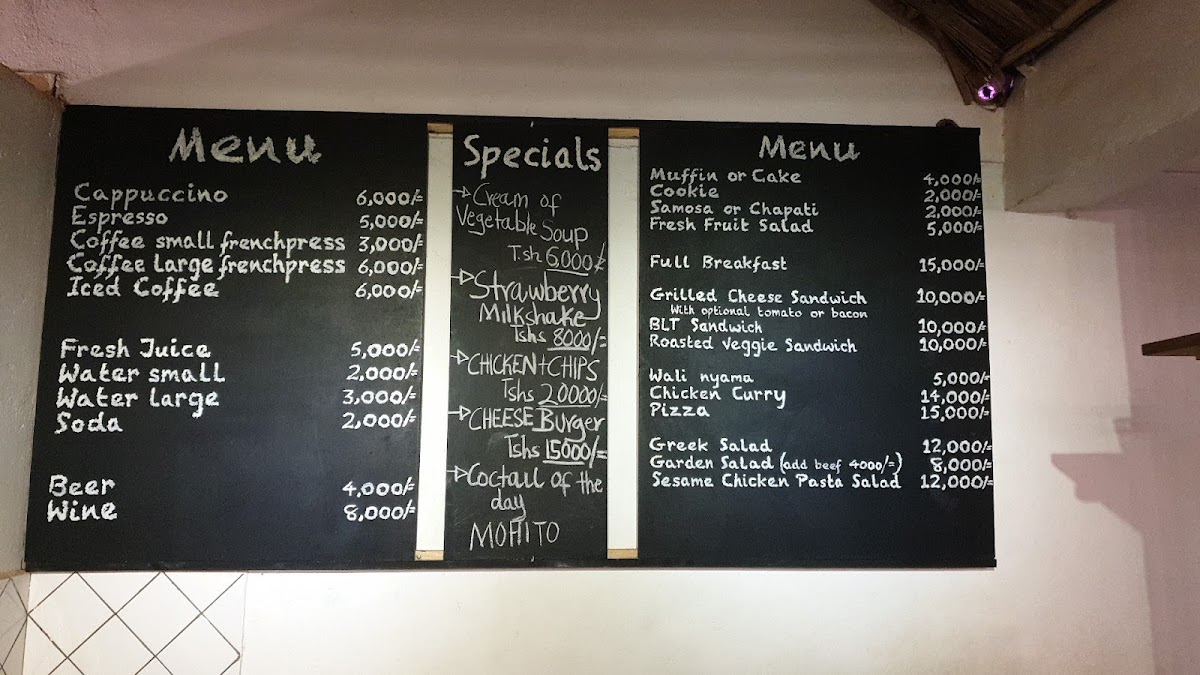 Menu
Cappuccino 6,000/=
Espresso 5,000/=
Coffee small frenchpress 3,000/=
Coffee large frenchpress 6,000/=
Iced Coffee 6,000/=
Fresh Juice 5,000/=
Water small 2,000/=
Water large 3,000/=
Soda 2,000/=
Beer 4,000/=
Wine 8,000/=
Specials
Cream of
Vegetable Soup
T.sh 6000/=
Strawberry
Milkshake
Tshs 8000/=
CHICKEN+CHIPS
Tshs 20000/=
CHEESE Burger
Tshs 15000/=
Coctail of the
day
MOHITO
Menu
Muffin or Cake 4,000/=
Cookie 2,000/=
Samosa or Chapati 2,000/=
Fresh Fruit Salad 5,000/=
Full Breakfast 15,000/=
Grilled Cheese Sandwich 10,000/=
With optional tomato or bacon
BLT Sandwich 10,000/=
Roasted veggie Sandwich 10,000/=
Wali nyama 5,000/=
Chicken Curry 14,000/=
Pizza 15,000/=
Greek Salad 12,000/=
Garden Salad (add beef 4000/=) 8,000/=
Sesame Chicken Pasta Salad 12,000/=